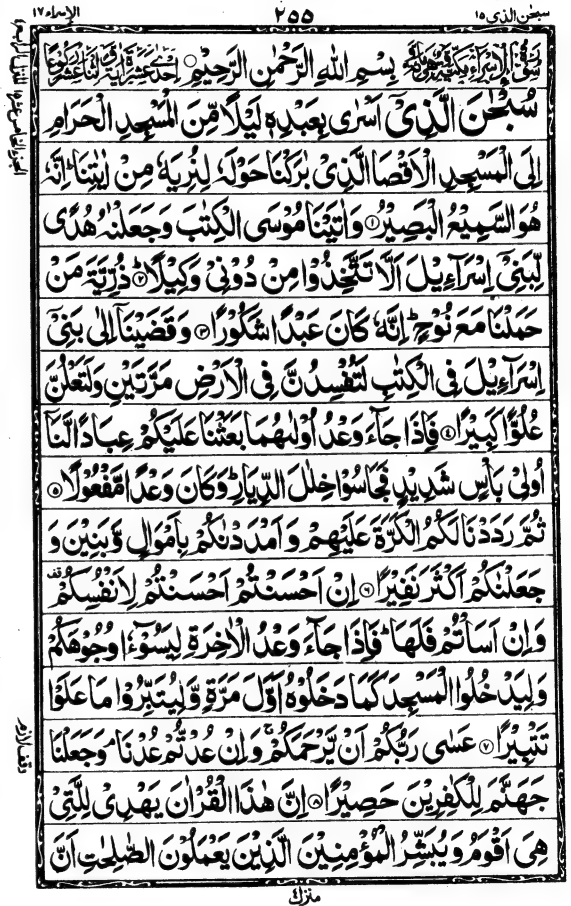 سبحٰن الذى ١٥ ٢٥٥ الإسراء ١٧
بِسْمِ اللهِ الرَّحْمٰنِ الرَّحِيْمِ
سُبْحٰنَ الَّذِىْۤ اَسْرٰى بِعَبْدِهٖ لَيْلًا مِّنَ الْمَسْجِدِ الْحَرَامِ
اِلَى الْمَسْجِدِ الْاَقْصَا الَّذِىْ بٰرَكْنَا حَوْلَهٗ لِنُرِيَهٗ مِنْ اٰيٰتِنَاؕ اِنَّهٗ
هُوَ السَّمِيْعُ الْبَصِيْرُ ١ وَاٰتَيْنَا مُوْسَى الْكِتٰبَ وَجَعَلْنٰهُ هُدًى
لِّبَنِىْۤ اِسْرَآءِيْلَ اَلَّا تَتَّخِذُوْا مِنْ دُوْنِىْ وَكِيْلًاؕ ٢ ذُرِّيَّةَ مَنْ
حَمَلْنَا مَعَ نُوْحٍؕ اِنَّهٗ كَانَ عَبْدًا شَكُوْرًا ٣ وَقَضَيْنَاۤ اِلٰى بَنِىْۤ
اِسْرَآءِيْلَ فِى الْكِتٰبِ لَتُفْسِدُنَّ فِى الْاَرْضِ مَرَّتَيْنِ وَلَتَعْلُنَّ
عُلُوًّا كَبِيْرًا ٤ فَاِذَا جَآءَ وَعْدُ اُوْلٰىهُمَا بَعَثْنَا عَلَيْكُمْ عِبَادًا لَّنَاۤ
اُولِىْ بَاْسٍ شَدِيْدٍ فَجَاسُوْا خِلٰلَ الدِّيَارِؕ وَكَانَ وَعْدًا مَّفْعُوْلًا ٥
ثُمَّ رَدَدْنَا لَكُمُ الْكَرَّةَ عَلَيْهِمْ وَاَمْدَدْنٰكُمْ بِاَمْوَالٍ وَّبَنِيْنَ وَ
جَعَلْنٰكُمْ اَكْثَرَ نَفِيْرًا ٦ اِنْ اَحْسَنْتُمْ اَحْسَنْتُمْ لِاَنْفُسِكُمْ قف
وَاِنْ اَسَاْتُمْ فَلَهَاؕ فَاِذَا جَآءَ وَعْدُ الْاٰخِرَةِ لِيَسُوْٓءٗا وُجُوْهَكُمْ
وَلِيَدْخُلُوا الْمَسْجِدَ كَمَا دَخَلُوْهُ اَوَّلَ مَرَّةٍ وَّلِيُتَبِّرُوْا مَا عَلَوْا
تَتْبِيْرًا ٧ عَسٰى رَبُّكُمْ اَنْ يَّرْحَمَكُمْۚ وَاِنْ عُدْتُّمْ عُدْنَاۘ وَجَعَلْنَا
جَهَنَّمَ لِلْكٰفِرِيْنَ حَصِيْرًا ٨ اِنَّ هٰذَا الْقُرْاٰنَ يَهْدِىْ لِلَّتِىْ
هِىَ اَقْوَمُ وَيُبَشِّرُ الْمُؤْمِنِيْنَ الَّذِيْنَ يَعْمَلُوْنَ الصّٰلِحٰتِ اَنَّ
وقف لازم
منزل ٤